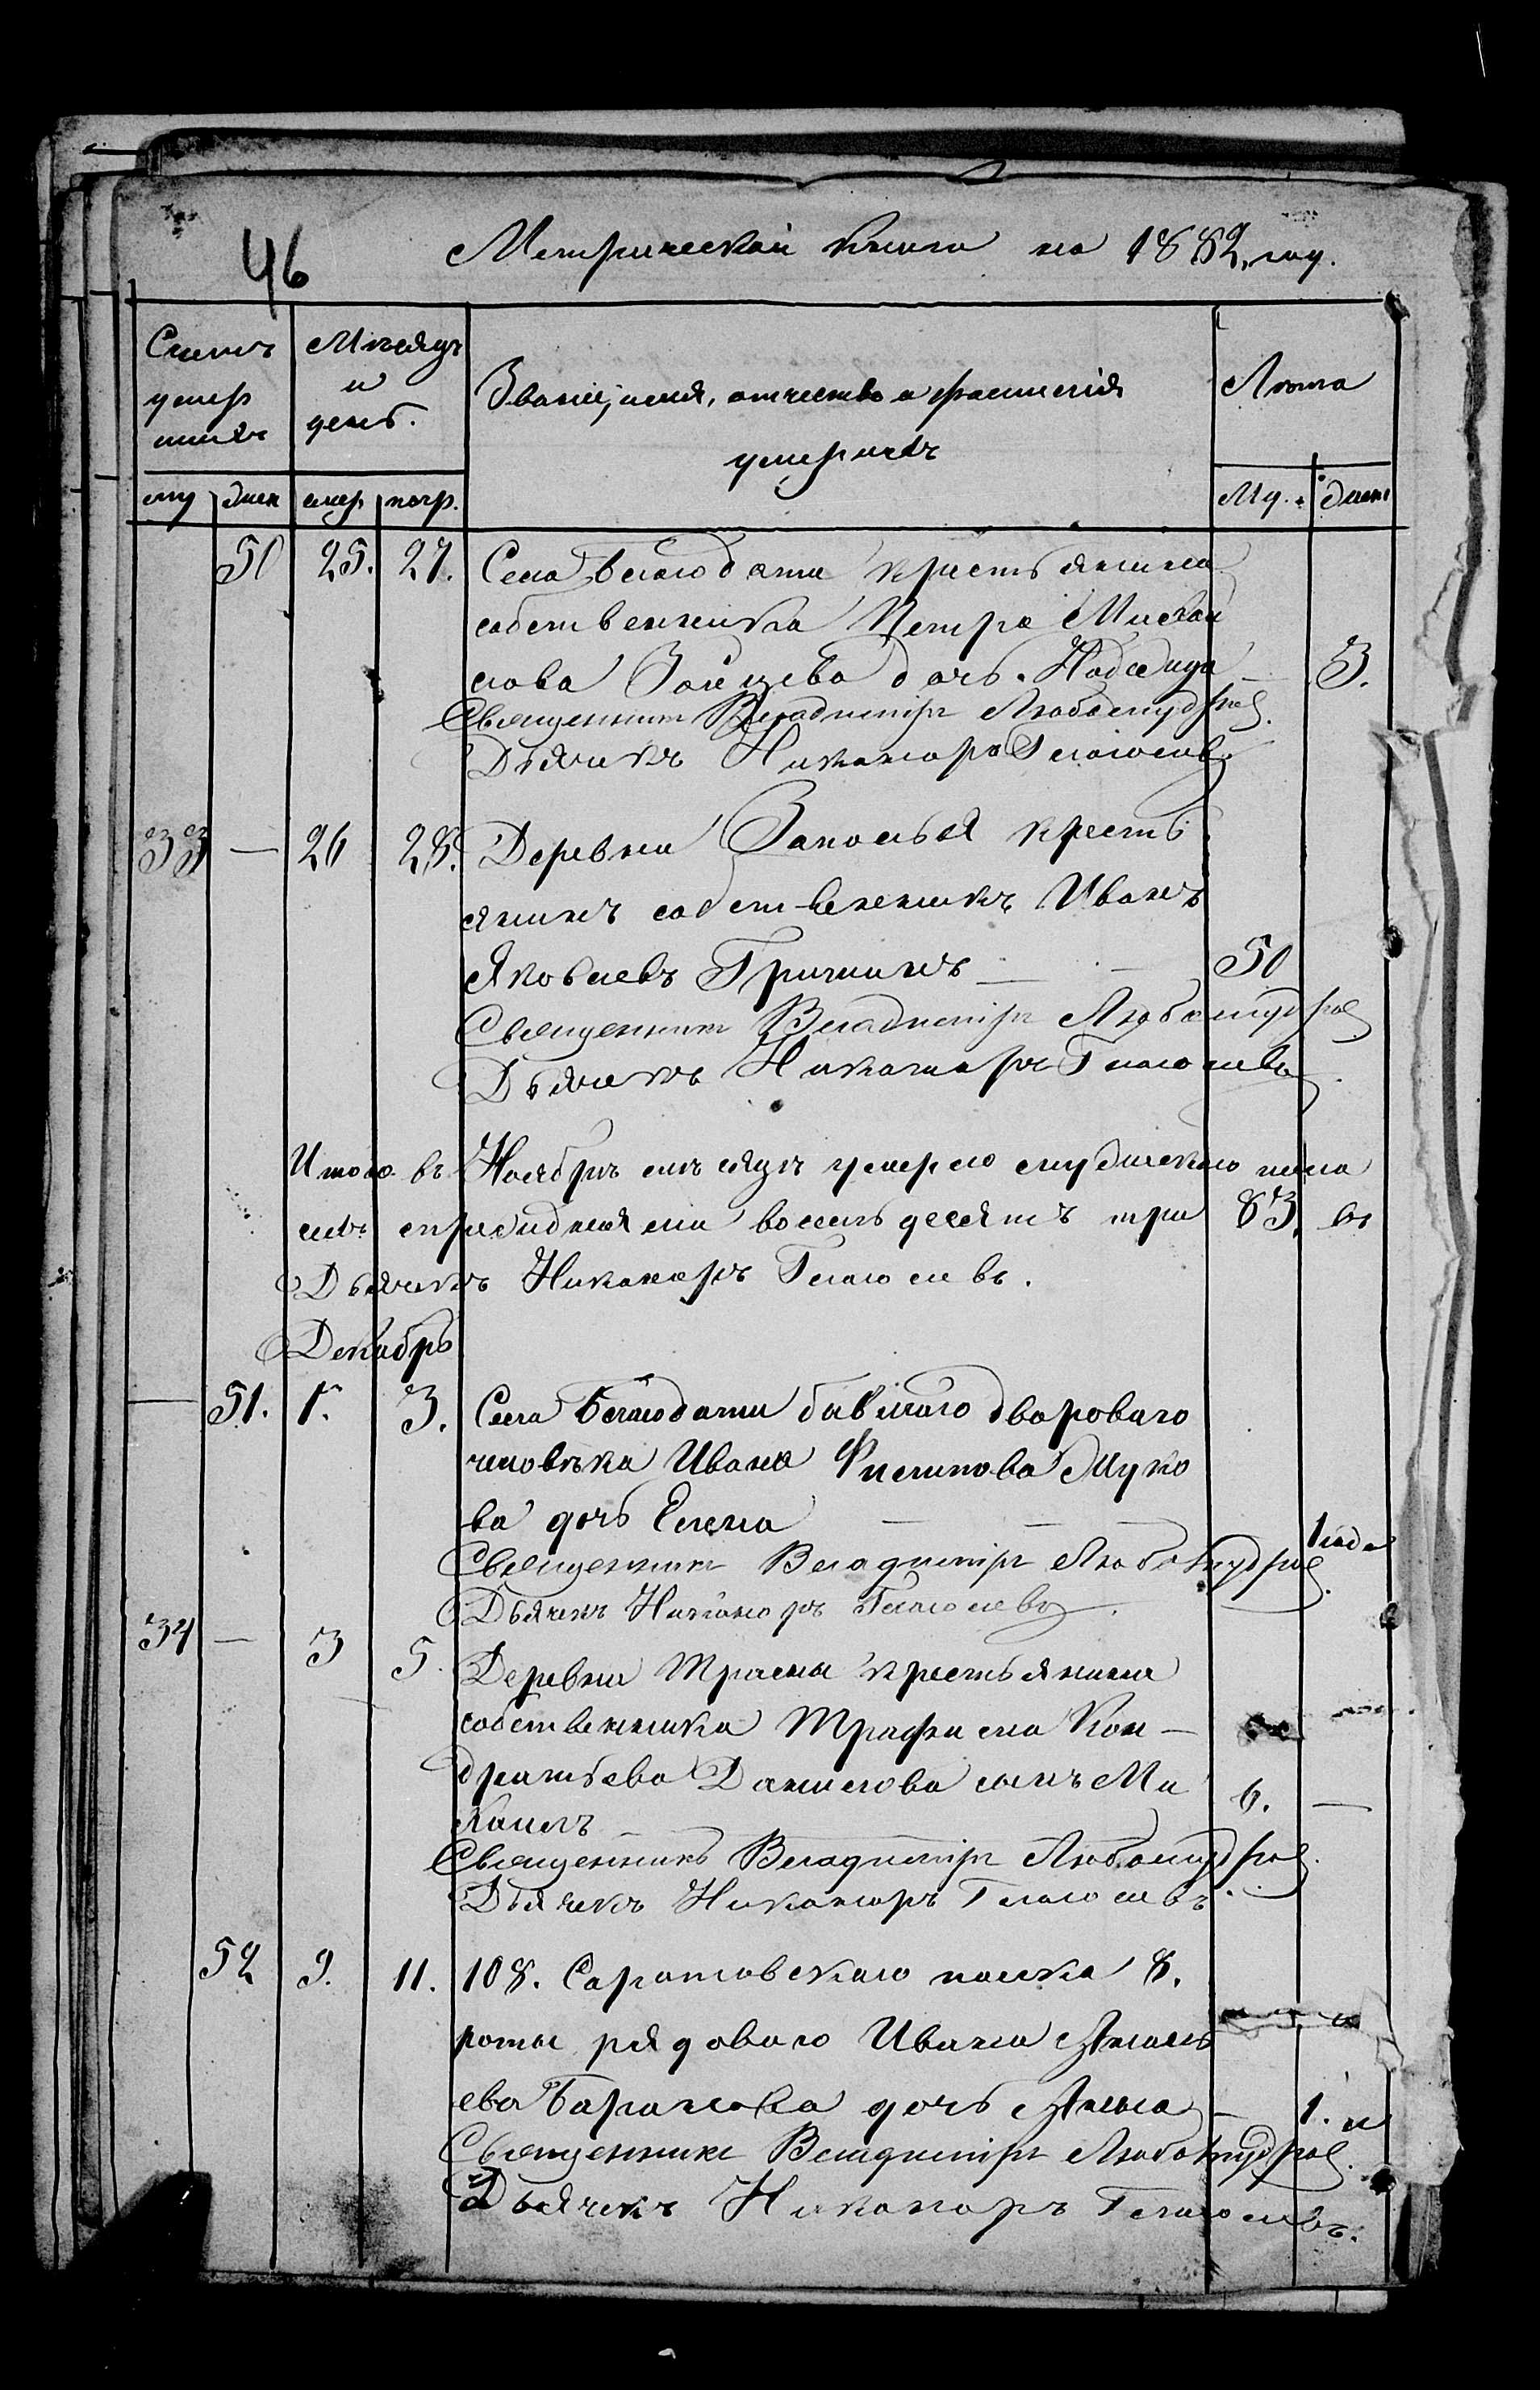 46
Метрической книги на 1882, году.
Счетъ умер шихъ
Мѣсяцъ и день.
Званіе, имя, отчество и фамилія умершихъ
Лѣта
му жен умер. погр. Му. жен
50 25. 27. Села Благодати крестьянина
собственника Петра Михай
лова Зайцева дочь. Надежда — 3.
Священникъ Владиміръ Любомудровъ.
Дьячекъ Никаноръ Глаголевъ
33 — 26 28. Деревни Заполья кресть
янинъ собственникъ Иванъ
Яковлевъ Гришинъ — — 50
Священникъ Владиміръ Любомудровъ
Дьячекъ Никаноръ Глаголевъ
Итого въ Ноябрѣ мѣсяцѣ умерло мужескаго пола
восемьдесятъ три 83.
Дьячекъ Никаноръ Глаголевъ.
Декабрь
— 51. 1. 3. Села Благодати бывшаго дворового
человѣка Ивана Филипова Муко
ва дочь Елена — — — 1 года
Священникъ Владиміръ Любомудровъ.
Дьячекъ Никаноръ Глаголевъ.
34 — 3 5. Деревни крестьянина
собственника Трафима Кон —
дратьева Данилова сынъ Ми
хаилъ — 6. —
Священникъ Владиміръ Любомудровъ.
Дьячекъ Никаноръ Глаголевъ.
52 9. 11. 108. Саратовскаго полка 8.
роты рядоваго Ивана
ева Баранова дочь Анна — 1.
Священникъ Владиміръ Любомудровъ.
Дьячекъ Никаноръ Глаголевъ.